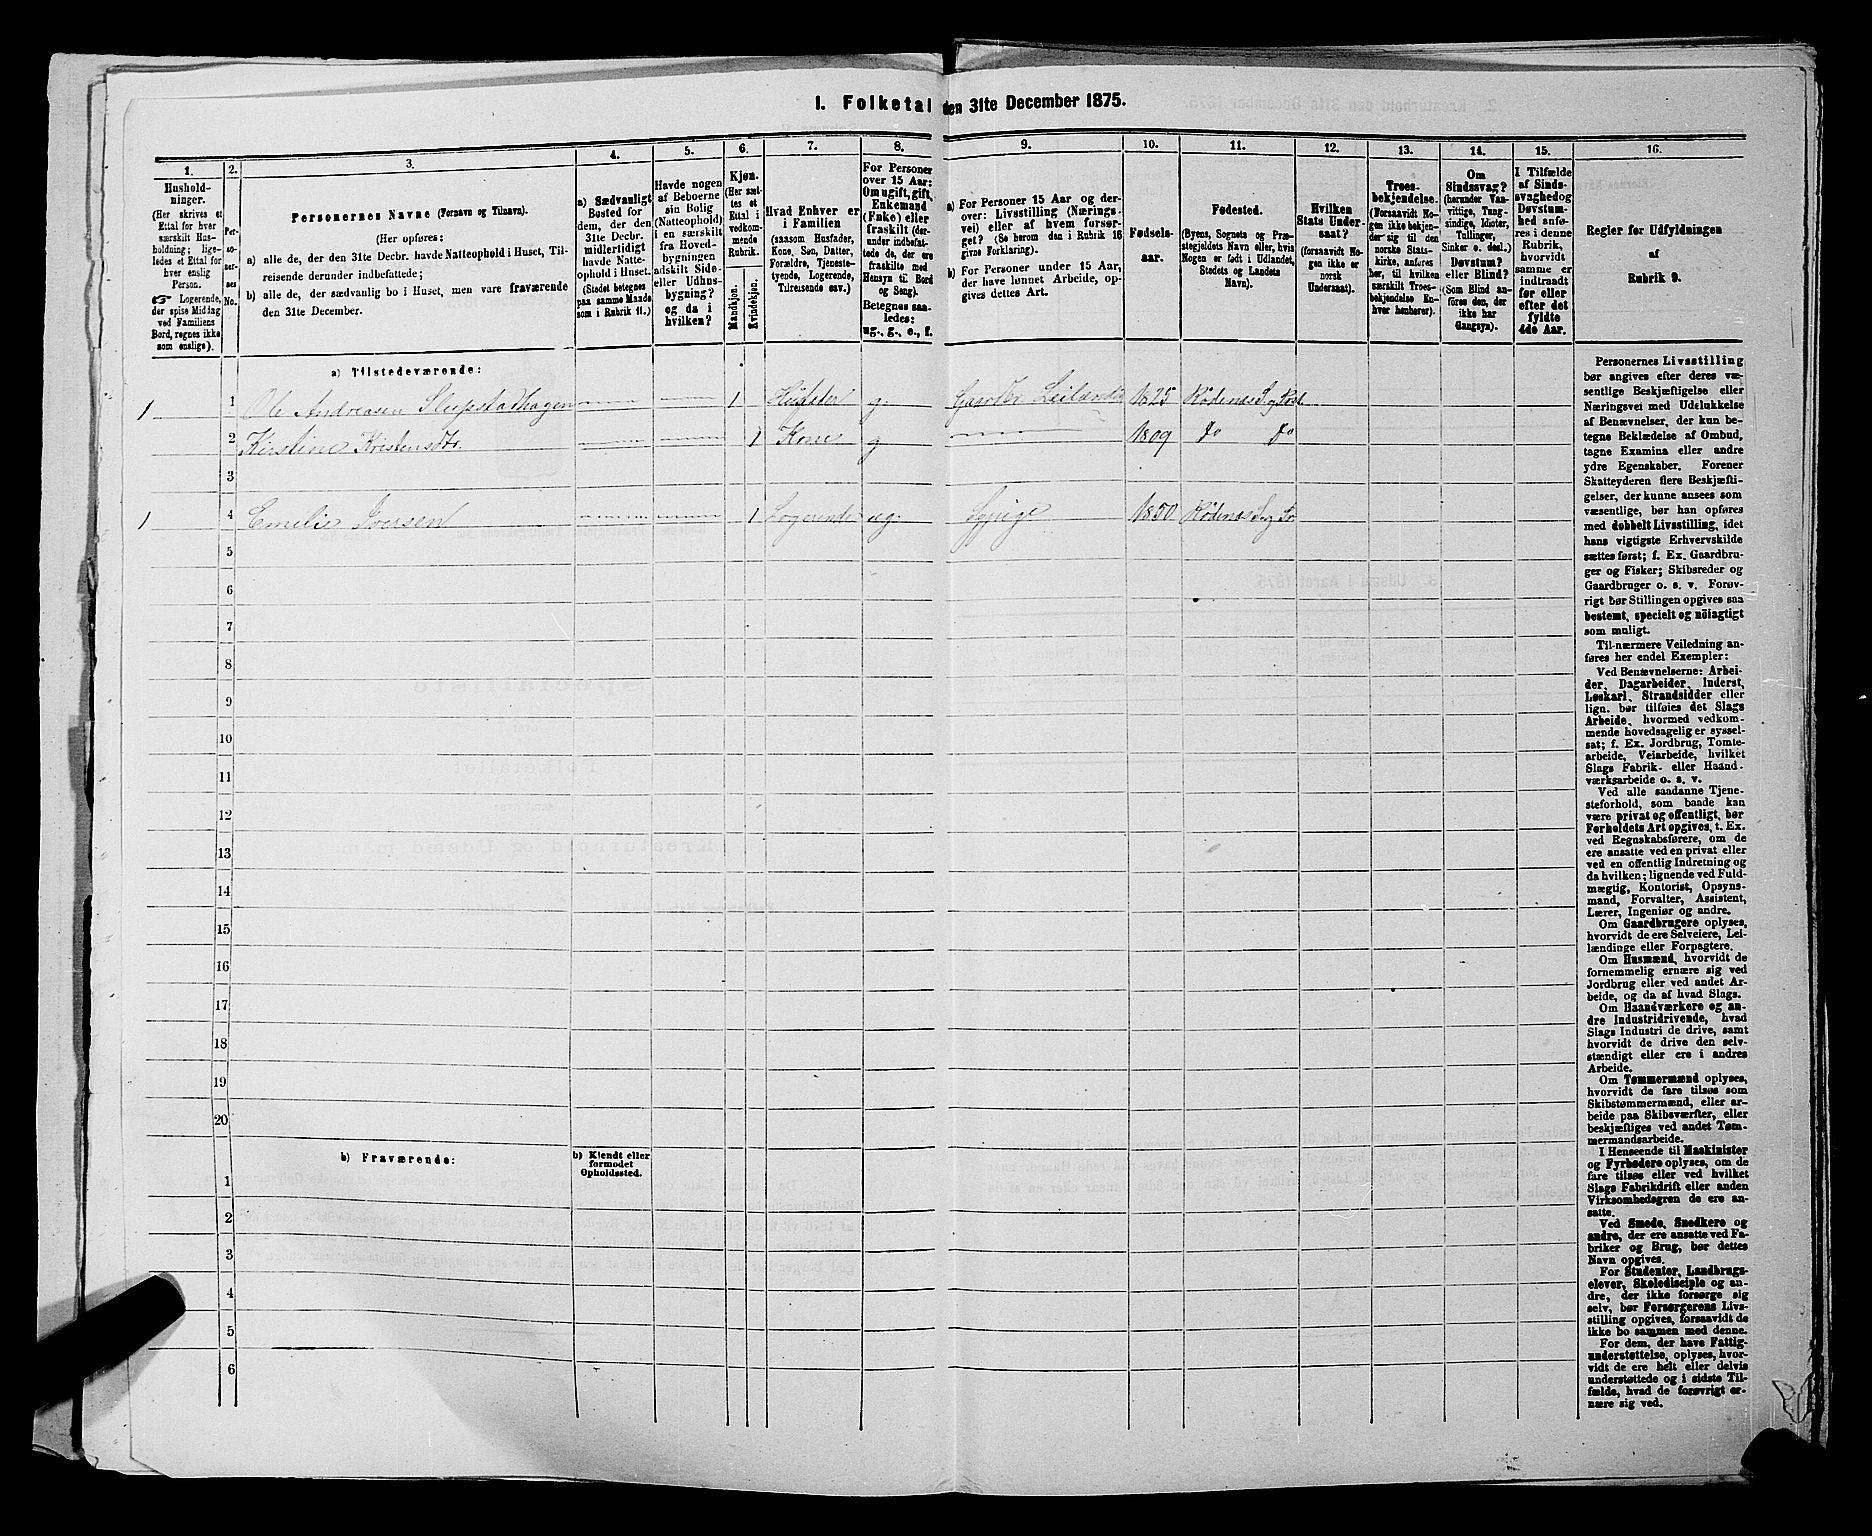 I. Folketal den 31te December 1875.
1.
Hushold-
ninger.
(Her skrives et
Ettal for hver
særskilt Hus-
holdning; lige-
ledes et Ettal for
hver enslig
Person.
☞ Logerende,
der spise Middag
ved Familiens
Bord, regnes ikke
som enslige).
2.
Per-
so-
ner-
ses
No.
3.
Personernes Navne (Fornavn og Tilnavn).
(Her opføres:
a) alle de, der den 31te Decbr. havde Natteophold i Huset, Til-
reisende derunder indbefattede;
b) alle de, der sædvanlig bo i Huset, men vare fraværende
den 31te December.
4.
a) Sædvanligt
Bosted for
dem, der den
31te Decbr.
midlertidigt
havde Natte-
ophold i Huset.
(Stedet betegnes
paa samme Maade
som i Rubrik 11.)
5.
Havde nogen
af Beboerne
sin Bolig
(Natteophold)
i en særskilt
fra Hoved-
bygningen
adskilt Side-
eller Udhus-
bygning?
og da i
hvilken?
6.
Kjøn.
(Her sæt-
tes et
Ettal i
vedkom-
mende
Rubrik.
Mandkjøn.
Kvindekjøn.
7.
Hvad Enhver er
i Familien
(saasom Husfader,
Kone, Søn, Datter,
Forældre, Tjeneste-
tyende, Logerende,
Tilreisende osv.)
8.
For Personer
over 15 Aar:
Om ugift, gift,
Enkemand
(Enke) eller
fraskilt (der-
under indbefat-
tede de, der ere
fraskilte med
Hensyn til Bord
og Seng).
Betegnes saa-
ledes:
ug., g., e., f.
9.
a) For Personer 15 Aar og der-
over: Livsstilling (Nærings-
vei) eller af hvem forsør-
get? (Se herom den i Rubrik 16
givne Forklaring).
b) For Personer under 15 Aar,
der have lønnet Arbeide, op-
gives dettes Art.
10.
Fødsels-
aar.
11.
Fødested.
(Byens, Sognets og Præ-
stegjeldets Navn eller, hvis
Nogen er født i Udlandet,
Stedets og Landets
Navn).
12.
Hvilken
Stats Under-
saat?
(forsaavidt No-
gen ikke er
norsk
Undersaat).
13.
Troes-
bekjendelse.
(Forsaavidt No-
gen ikke bekjen-
der sig til den
norske Stats-
kirke, anføres
her, til hvilken
særskilt Troes-
bekjendelse En-
hver henhører).
14.
Om
Sindssvag?
(herunder Van-
vittige, Tung-
sindige, Idioter,
Tullinger,
Sinker o. desl.)
Døvstum?
eller Blind?
(Som Blind an-
føres den, der
ikke har
Gangsyn).
15.
I Tilfælde
af Sinds-
svaghed og
Døvstum-
hed anfø-
res i denne
Rubrik,
hvorvidt
samme er
indtraadt
før eller
efter det
fyldte
4de Aar.
16.
Regler for Udfyldningen
af
Rubrik 9.
a) Tilstedeværende:
1 1 Ole Andreasen Slupstadhagen 1 Husfader g. Gaardbr Leilænding 1825 Rødenæs S og Præst
2 Kirstine Kristensdtr. 1 Kone g 1809 do do
3
1 4 Emelie Iversen 1 Logerende ug. Sypige 1850 Rødenæs S og Pr
5
6
7
8
9
10
11
12
13
14
15
16
17
18
19
20
b) Fraværende:
b) Kjendt eller
formodet
Opholdssted.
1
2
3
4
5
6
Personernes Livsstilling
bør angives efter deres væ-
sentlige Beskjæftigelse eller
Næringsvei med Udelukkelse
af Benævnelser, der kun be-
tegne Beklædelse af Ombud,
tagne Examina eller andre
ydre Egenskaber. Forener
Skatteyderen flere Beskjæfti-
gelser, der kunne ansees som
væsentlige, bør han opføres
med dobbelt Livsstilling, idet
hans vigtigste Erhvervskilde
sættes først; f. Ex. Gaardbru-
ger og Fisker; Skibsreder og
Gaardbruger o. s. v. Forøv-
rigt bør Stillingen opgives saa
bestemt, specielt og nöiagtigt
som muligt.
Til nærmere Veiledning an-
føres her endel Exempler:
Ved Benævnelserne: Arbei-
der, Dagarbeider, Inderst,
Løskarl, Strandsidder eller
lign. bør tilføies det Slags
Arbeide, hvormed vedkom-
mende hovedsagelig er syssel-
sat; f. Ex. Jordbrug, Tomte-
arbeide, Veiarbeide, hvilket
Slags Fabrik- eller Haand-
værksarbeide o. s. v.
Ved alle saadanne Tjene-
steforhold, som baade kan
være privat og offentligt, bør
Forholdets Art opgives, t. Ex.
ved Regnskabsførere, om de
ere ansatte ved en privat eller
ved en offentlig Indretning og
da hvilken; lignende ved Fuld-
mægtig, Kontorist, Opsyns-
mand, Forvalter, Assistent,
Lærer, Ingeniør og andre.
Om Gaardbrugere oplyses,
hvorvidt de ere Selveiere, Lei-
lændinge eller Forpagtere.
Om Husmænd, hvorvidt de
fornemmelig ernære sig ved
Jordbrug eller ved andet Ar-
beide, og da af hvad Slags.
Om Haandværkere og an-
dre Industridrivende, hvad
Slags Industri de drive, samt
hvorvidt de drive den selv-
stændigt eller ere i andres
Arbeide.
Om Tømmermænd oplyses,
hvorvidt de fare tilsøs som
Skibstømmermænd, eller ar-
beide paa Skibsværfter, eller
beskjæftiges ved andet Tøm-
mermandsarbeide.
I Henseende til Maskinister
og Fyrbødere oplyses, om de
fare tilsøs eller ved hvilket
Slags Fabrikdrift eller anden
Virksomhedsgren de ere an-
satte.
Ved Smede, Snedkere og
andre, der ere ansatte ved Fa-
briker og Brug, bør dettes
Navn opgives.
For Studenter, Landbrugs-
elever, Skoledisciple og an-
dre, der ikke forsørge sig
selv, bør Forsørgerens Livs-
stilling opgives, forsaavidt de
ikke bo sammen med denne.
For dem, der have Fattig-
understøttelse, oplyses, hvor-
vidt de ere helt eller delvis
understøttede og i sidste Til-
fælde, hvad de forøvrigt er-
nære sig ved.